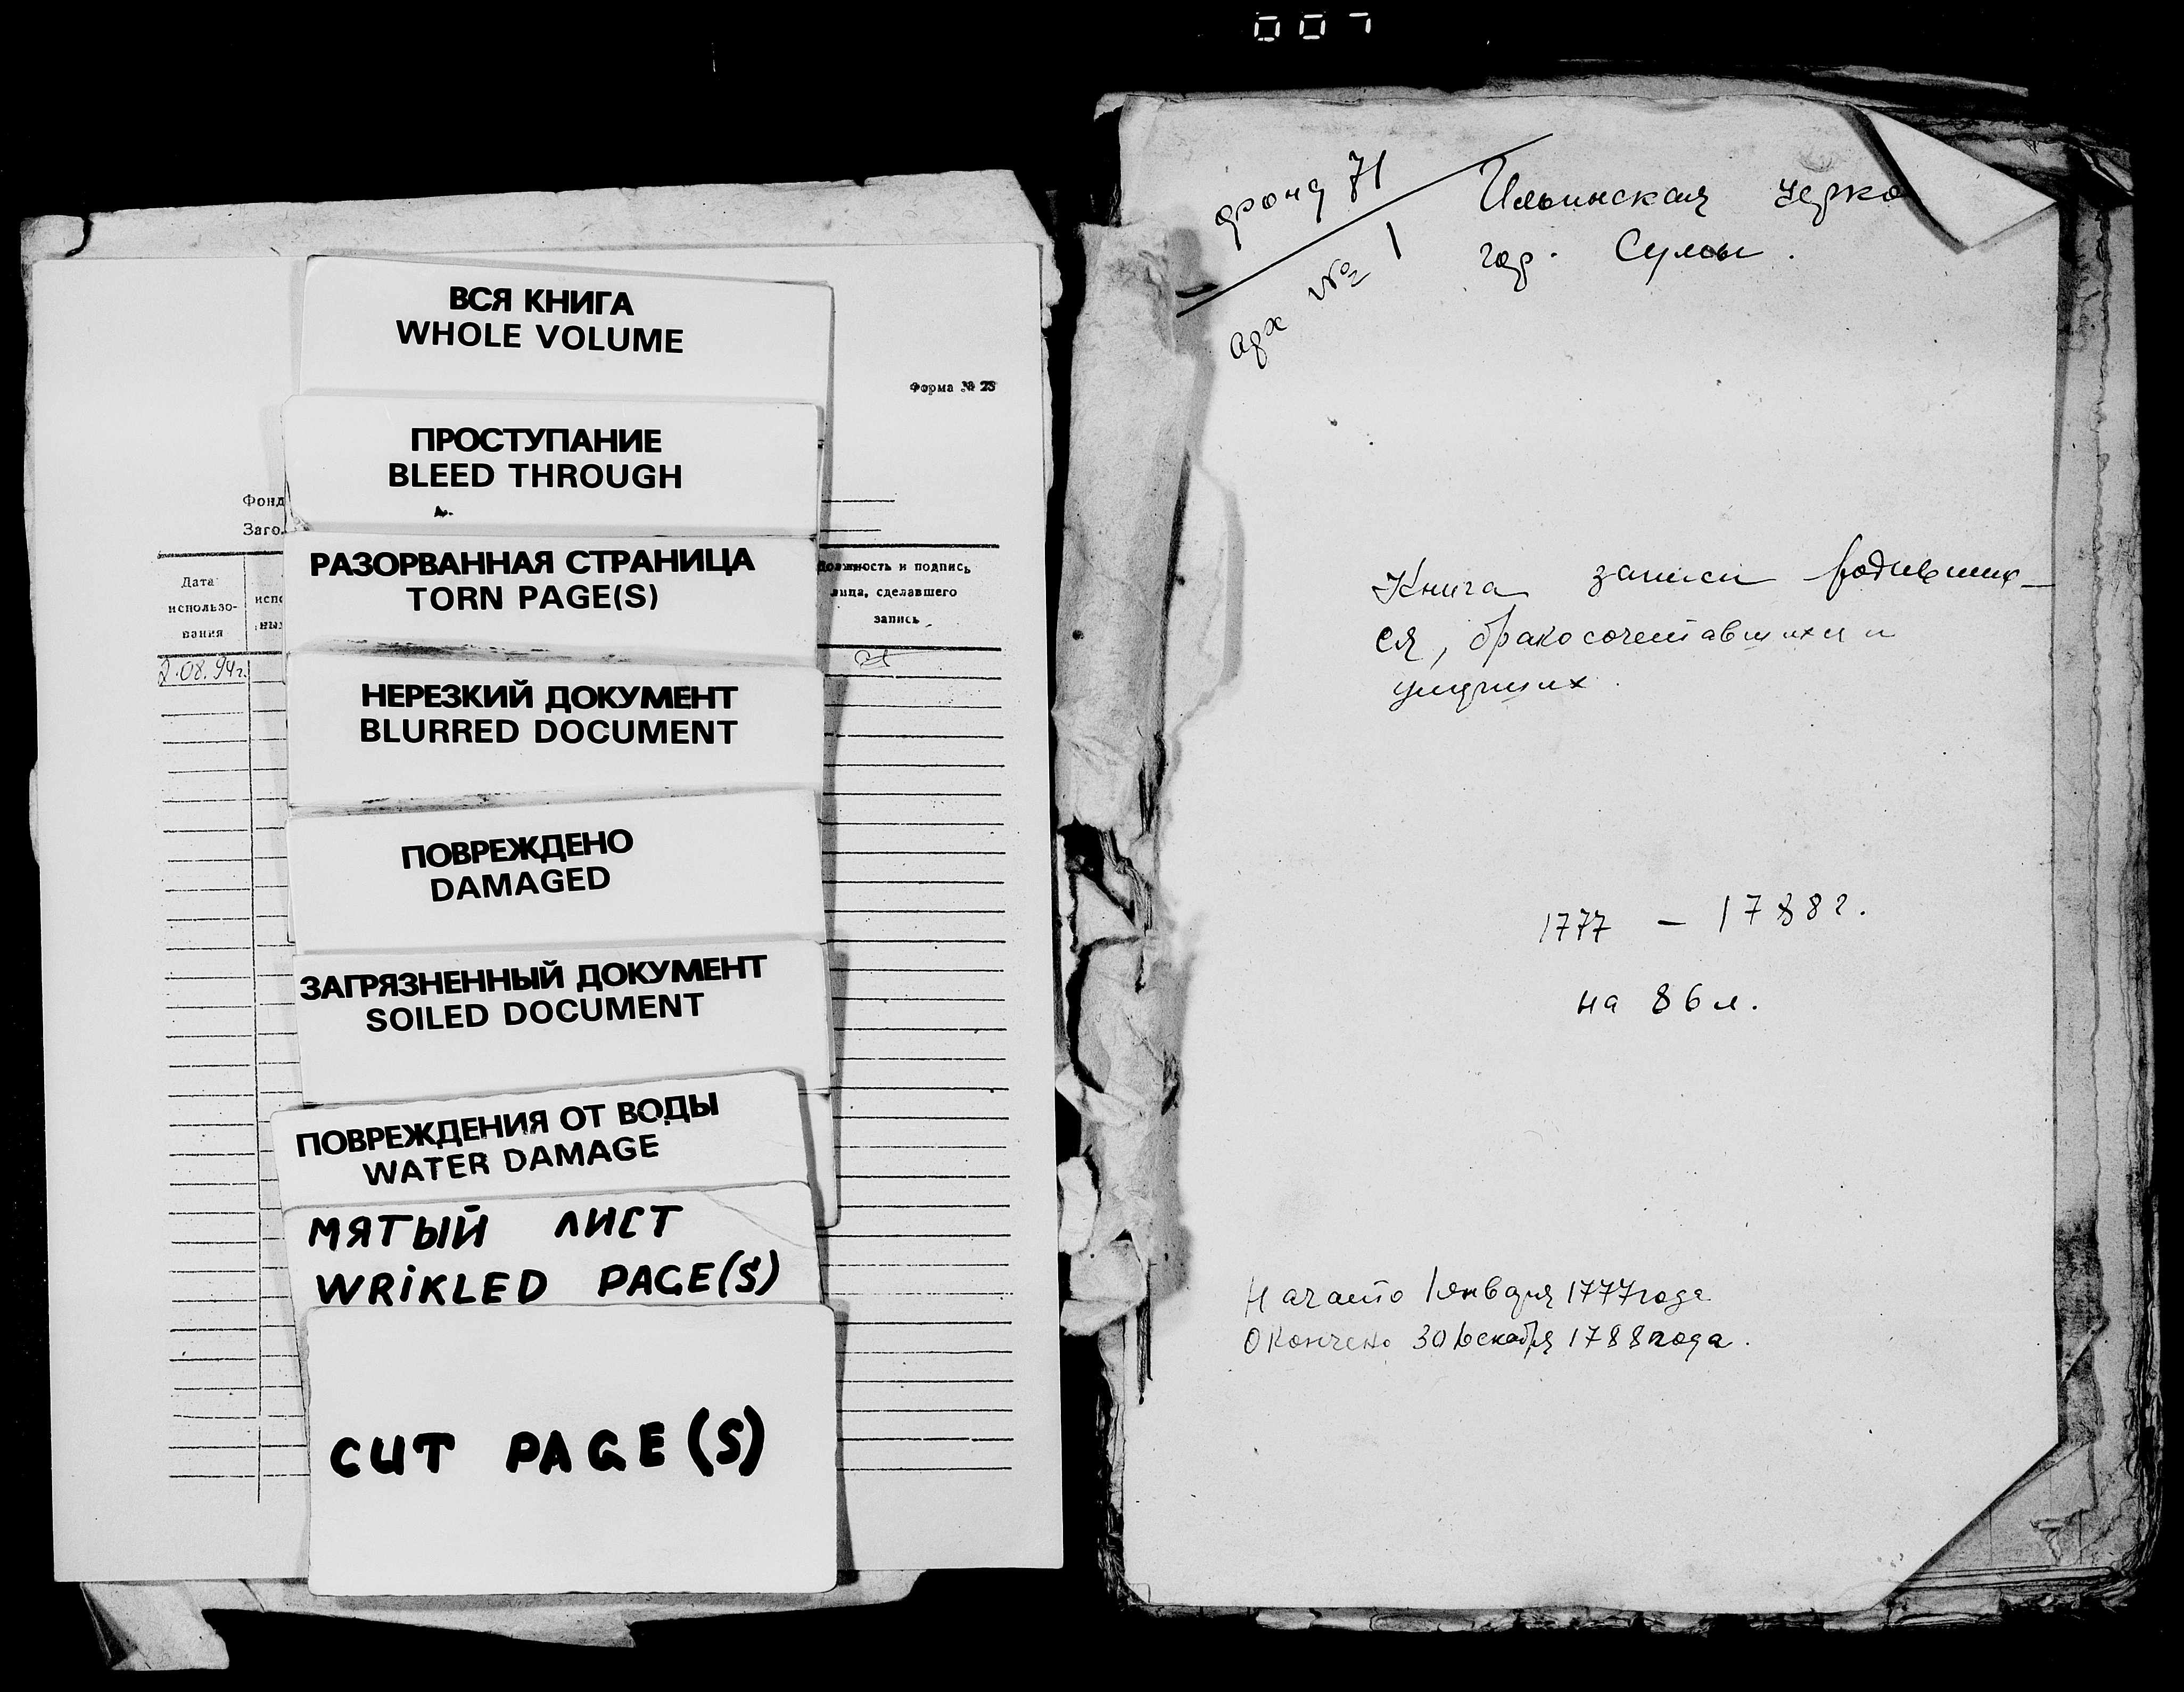 007
ВСЯ КНИГА
WHOLE VOLUME
Форма № 23
ПРОСТУПАНИЕ
BLEED THROUGH
Фонд
Заго
РАЗОРВАННАЯ СТРАНИЦА
TORN PAGE(S)
Дата
использо-
вания
испо
Должность и подпись
лица, сделавшего
запись
2.08.94г.
НЕРЕЗКИЙ ДОКУМЕНТ
BLURRED DOCUMENT
ПОВРЕЖДЕНО
DAMAGED
ЗАГРЯЗНЕННЫЙ ДОКУМЕНТ
SOILED DOCUMENT
ПОВРЕЖДЕНИЯ ОТ ВОДЫ
WATER DAMAGE
МЯТЫЙ ЛИСТ
WRIKLED PAGE(S)
CUT PAGE(S)
фонд 71
арх № 1
Ильинская церко
гор. Сумы.
Книга записи родивших-
ся, бракосочетавшихся и
умерших.
1777 - 1788г.
на 86 л.
Начато 1 января 1777 года
Окончено 30 декабря 1788 года.